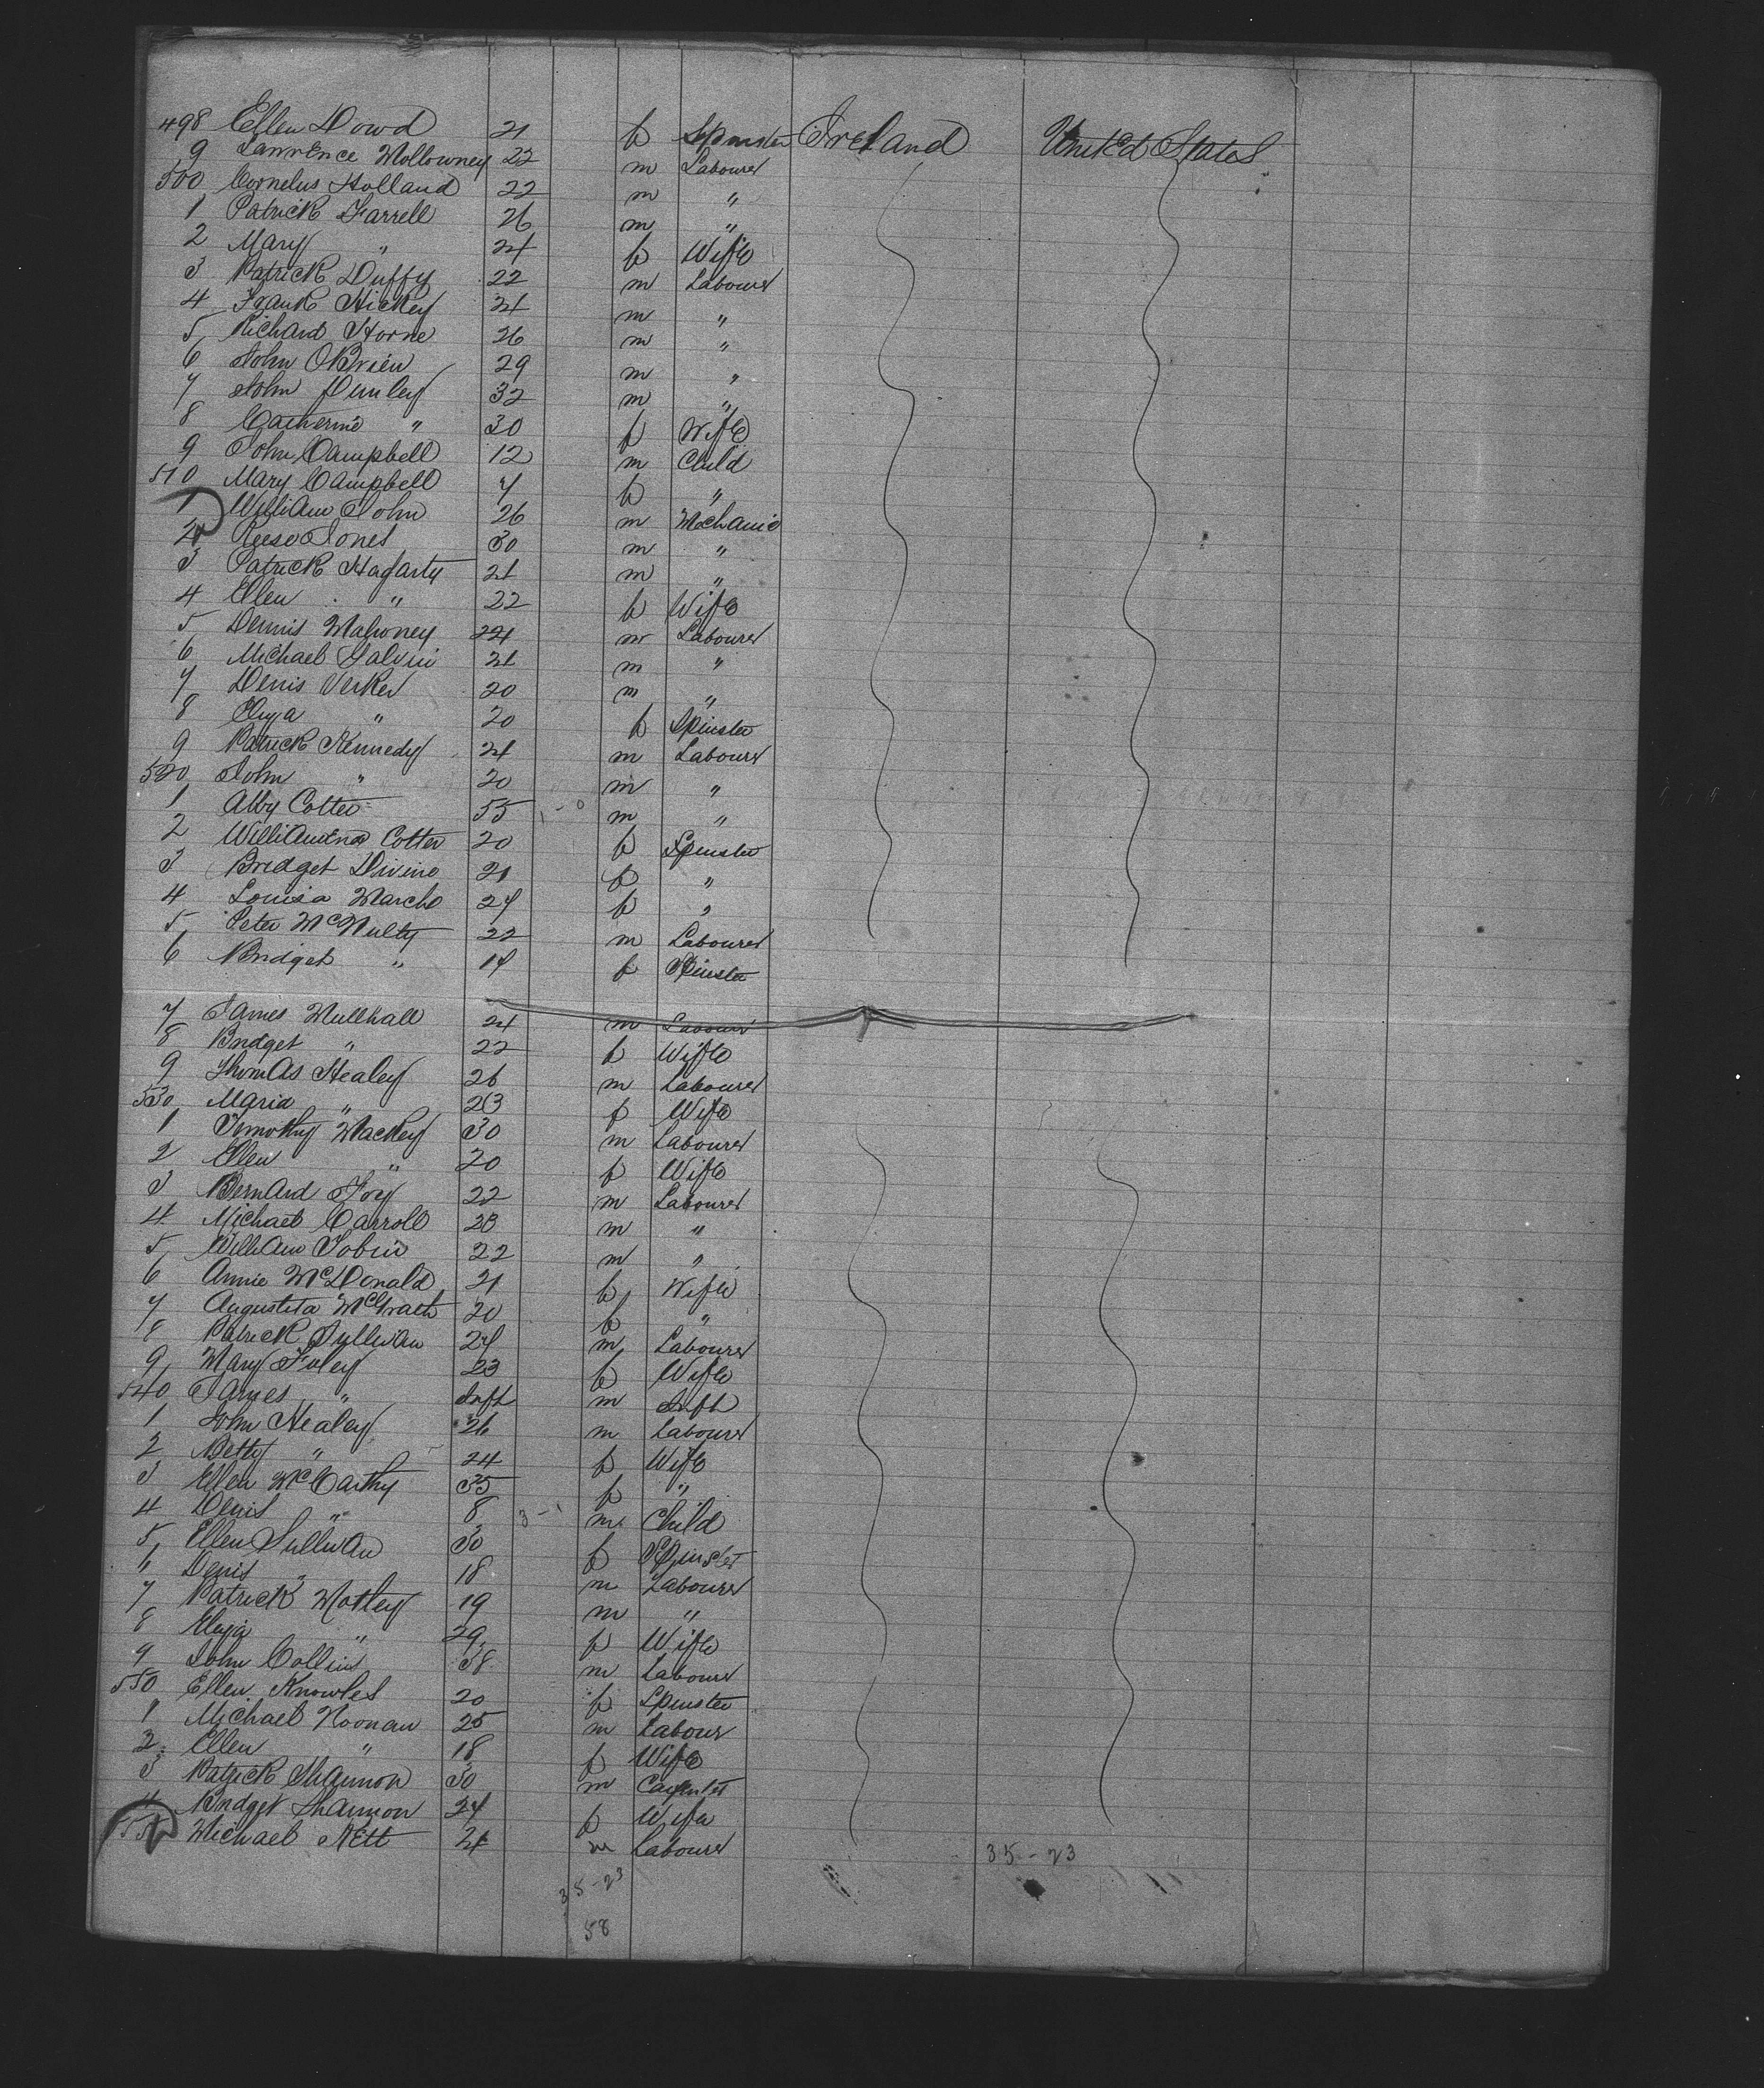 498 Ellen Dowd 21 f Spinster Ireland United States
9 Lawrence Mollowney 22 m Labourer
500 Cornelus Holland 22 m "
1 Patrick Farrell 26 m "
2 Mary " 24 f Wife
3 Patrick Duffy 22 m Labourer
4 Frank Hickey 21 m "
5 Richard Horne 26 m "
6 John OBrien 29 m "
7 John Dunley 32 m "
8 Catherine " 30 f Wife
9 John Campbell 12 m Child
510 Mary Campbell 7 f "
1 William John 26 m Mechanic
2 Reese Jones 30 m "
3 Patrick Hagarty 21 m "
4 Ellen " 22 f Wife
5 Dennis Mahoney 24 m Labourer
6 Michael Galvin 21 m "
7 Denis Verker 20 m "
8 Eliza " 20 f Spinster
9 Patrick Kennedy 21 m Labourer
520 John " 20 m "
1 Abby Cotter 55 m "
2 Williamena Cotter 20 f Spinster
3 Bridget Divine 21 f "
4 Louisa 24 f "
5 Peter McNulty 22 m Labourer
6 Bridget " 17 f Spinster
7 James Mullhall 24 m Labourer
8 Bridget " 22 f Wife
9 Thomas Healey 26 m Labourer
530 Maria " 23 f Wife
1 Timothy Mackey 30 m Labourer
2 Ellen " 20 f Wife
3 Bernard Foy 22 m Labourer
4 Michael Carroll 23 m "
5 William Tobin 22 m "
6 Annie McDonald 21 f Wife
7 Augusteta McGrath 20 f "
8 Patrick Sullivan 24 m Labourer
9 Mary Foley 23 f Wife
540 James " Inft m Inft
1 John Healey 26 m Labourer
2 Betty " 24 f Wife
3 Ellen McCarthy 35 f "
4 Denis " 8 m Child
5 Ellen Sullivan 30 f Spinster
6 Denis " 18 m Labourer
7 Patrick Motley 19 m "
8 Eliza " 29 f Wife
9 John Collins 38 m Labourer
550 Ellen Knowles 20 f Spinster
1 Michael Noonan 25 m Labour
2 Ellen " 18 f Wife
3 Patrick Shannon 30 m
4 Bridget Shannon 24 f Wife
555 Michael Nett 21 m Labourer
35-23
35-23
58